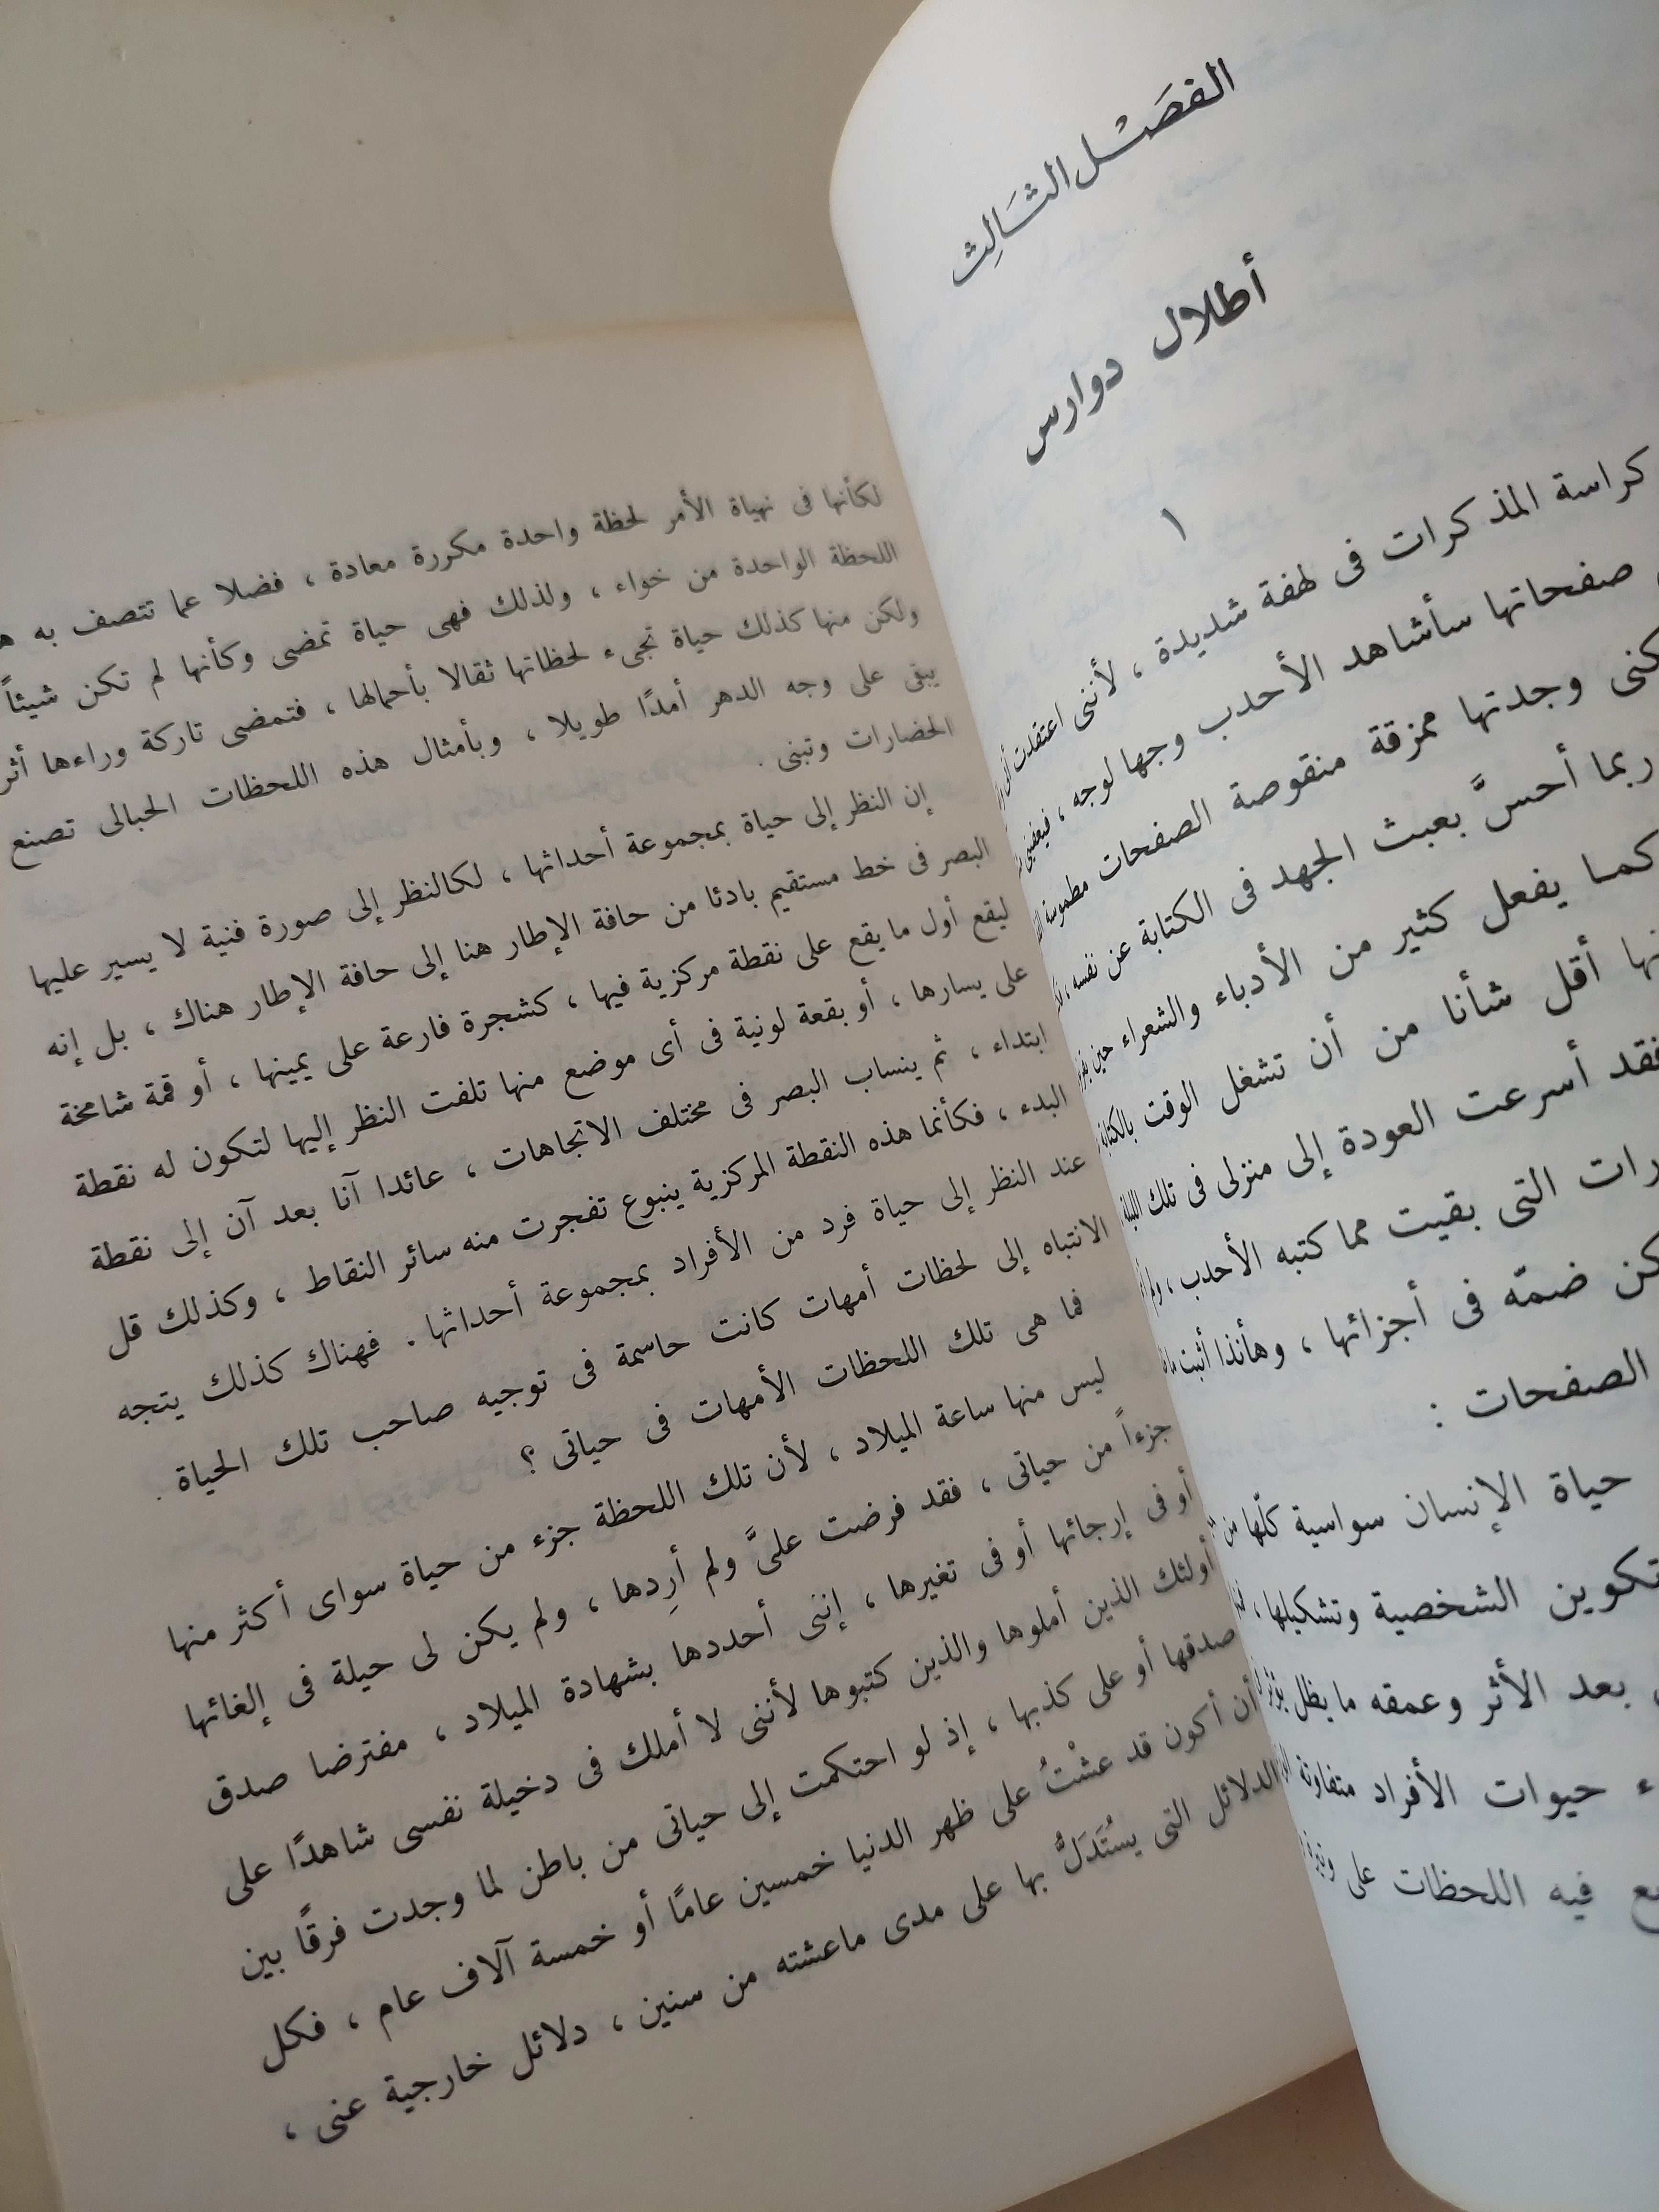 الفصل الثالث
أطلال دوارس
١
كراسة المذكرات فى لهفة شديدة ، لأننى اعتقدت أنى
صفحاتها سأشاهد الأحدب وجها لوجه ،
وجدتها ممزقة منقوصة الصفحات مطموسة
ربما أحسَّ بعبث الجهد فى الكتابة عن نفسه ،
كما يفعل كثير من الأدباء والشعراء حين
أقل شأنا من أن تشغل الوقت بالكتابة
فقد أسرعت العودة إلى منزلى فى تلك الليلة
التى بقيت مما كتبه الأحدب ،
ضمّه فى أجزائها ، وهأنذا أثبت
الصفحات :
حياة الإنسان سواسية كلّها من
تكوين الشخصية وتشكيلها ،
بعد الأثر وعمقه ما يظل يؤثر
حيوات الأفراد متفاوتة
فيه اللحظات على وتيرة
لكأنها فى نهياة الأمر لحظة واحدة مكررة معادة ، فضلا عما تتصف به
اللحظة الواحدة من خواء ، ولذلك فهى حياة تمضى وكأنها لم تكن شيئاً
ولكن منها كذلك حياة تجىء لحظاتها ثقالا بأحمالها ، فتمضى تاركة وراءها
يبقى على وجه الدهر أمدًا طويلا ، وبأمثال هذه اللحظات الحبالى تصنع
الحضارات وتبنى .
إن النظر إلى حياة بمجموعة أحداثها ، لكالنظر إلى صورة فنية لا يسير عليها
البصر فى خط مستقيم بادئا من حافة الإطار هنا إلى حافة الإطار هناك ، بل إنه
ليقع أول ما يقع على نقطة مركزية فيها ، كشجرة فارعة على يمينها ، أو قمة شامخة
على يسارها ، أو بقعة لونية فى أى موضع منها تلفت النظر إليها لتكون له نقطة
ابتداء ، ثم ينساب البصر فى مختلف الاتجاهات ، عائدا آنا بعد آن إلى نقطة
البدء ، فكأنما هذه النقطة المركزية ينبوع تفجرت منه سائر النقاط ، وكذلك قل
عند النظر إلى حياة فرد من الأفراد بمجموعة أحداثها . فهناك كذلك يتجه
الانتباه إلى لحظات أمهات كانت حاسمة فى توجيه صاحب تلك الحياة .
فما هى تلك اللحظات الأمهات فى حياتى ؟
ليس منها ساعة الميلاد ، لأن تلك اللحظة جزء من حياة سواى أكثر منها
جزءاً من حياتى ، فقد فرضت علىَّ ولم أرِدها ، ولم يكن لى حيلة فى إلغائها
أو فى إرجائها أو فى تغيرها ، إننى أحددها بشهادة الميلاد ، مفترضا صدق
أولئك الذين أملوها والذين كتبوها لأننى لا أملك فى دخيلة نفسى شاهدًا على
صدقها أو على كذبها ، إذ لو احتكمت إلى حياتى من باطن لما وجدت فرقًا بين
أن أكون قد عشْتُ على ظهر الدنيا خمسين عامًا أو خمسة آلاف عام ، فكل
الدلائل التى يسُتَدَلُّ بها على مدى ماعشته من سنين ، دلائل خارجية عنى ،